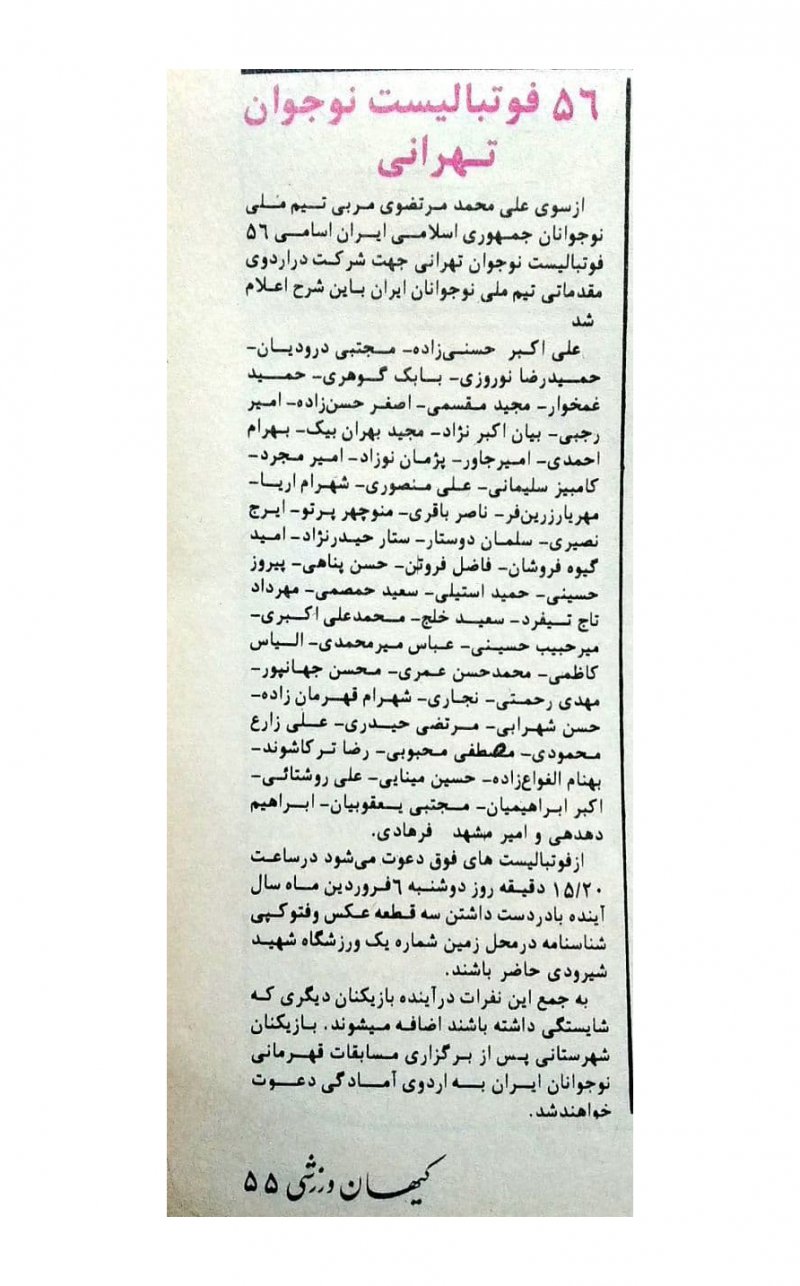 ۵۶ فوتبالیست نوجوان
تهرانی
ازسوی علی محمد مرتضوی مربی تیم ملی
نوجوانان جمهوری اسلامی ایران اسامی ۵۶
فوتبالیست نوجوان تهرانی جهت شرکت دراردوی
مقدماتی تیم ملی نوجوانان ایران باین شرح اعلام
شد
علی اکبر حسنی‌زاده- مجتبی درودیان-
حمیدرضا نوروزی- بابک گوهری- حمید
غمخوار- مجید مقسمی- اصغر حسن‌زاده- امیر
رجبی- بیان اکبر نژاد- مجید بهران بیک- بهرام
احمدی- امیرجاور- پژمان نوزاد- امیر مجرد-
کامبیز سلیمانی- علی منصوری- شهرام اریا-
مهریارزرین‌فر- ناصر باقری- منوچهر پرتو- ایرج
نصیری- سلمان دوستار- ستار حیدرنژاد- امید
گیوه فروشان- فاضل فروتن- حسن پناهی- پیروز
حسینی- حمید استیلی- سعید حمصمی- مهرداد
تاج تیفرد- سعید خلج- محمدعلی اکبری-
میرحبیب حسینی- عباس میرمحمدی- الیاس
کاظمی- محمدحسن عمری- محسن جهانپور-
مهدی رحمتی- نجاری- شهرام قهرمان زاده-
حسن شهرابی- مرتضی حیدری- علی زارع
محمودی- مصطفی محبوبی- رضا ترکاشوند-
بهنام الفواع‌زاده- حسین مینایی- علی روشنائی-
اکبر ابراهیمیان- مجتبی یعقوبیان- ابراهیم
دهدهی و امیر مشهد فرهادی.
ازفوتبالیست های فوق دعوت می‌شود درساعت
۱۵/۲۰ دقیقه روز دوشنبه ۶فروردین ماه سال
آینده بادردست داشتن سه قطعه عکس وفتوکپی
شناسنامه درمحل زمین شماره یک ورزشگاه شهید
شیرودی حاضر باشند.
به جمع این نفرات درآینده بازیکنان دیگری که
شایستگی داشته باشند اضافه میشوند. بازیکنان
شهرستانی پس از برگزاری مسابقات قهرمانی
نوجوانان ایران به اردوی آمادگی دعوت
خواهندشد.
کیهان ورزشی ۵۵